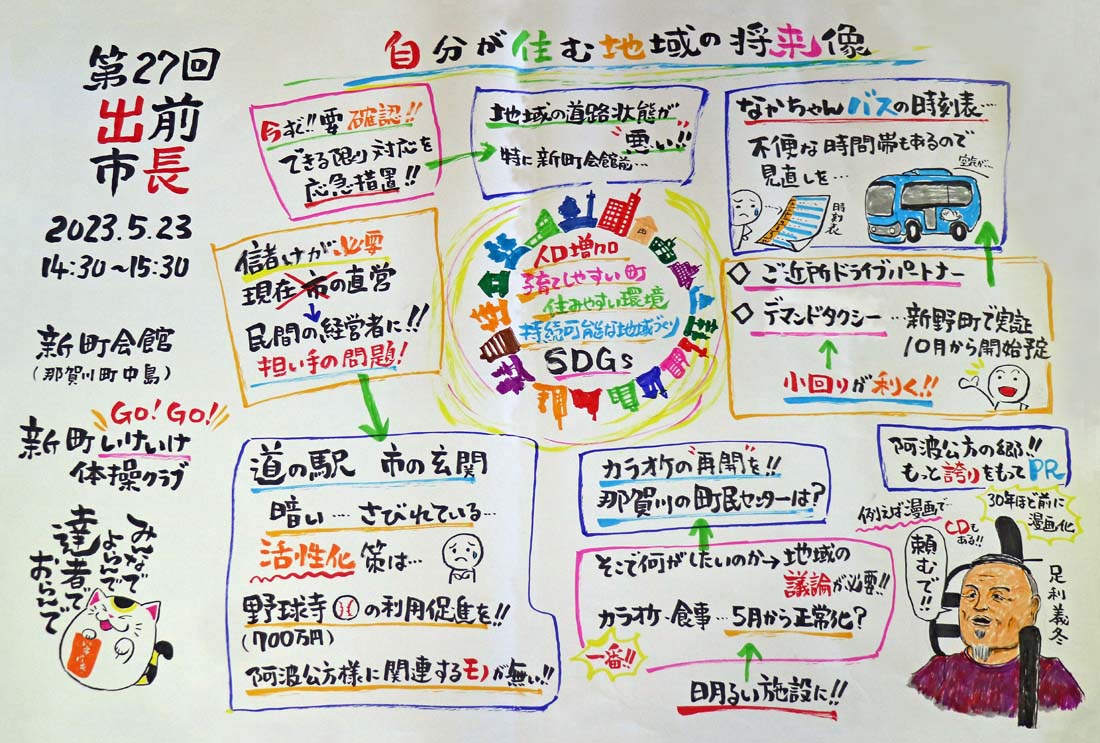 自分が住む地域の将来像
第27回
出前
市長
2023.5.23
14:30~15:30
新町会館
(那賀川町中島)
GO! GO!
新町いけいけ
体操クラブ
みんなで
よろんで
達者で
おらんで
今すぐ!!要確認!!
できる限り対応を
応急措置!!
地域の道路状態が
"悪い!!"
特に新町会館前…
なかちゃんバスの時刻表…
不便な時間帯もあるので
見直しを…
空気が…
時刻表
儲けが必要
現在市の直営
民間の経営者に!!
担い手の問題!
人口増加
子育てしやすい町
住みやすい環境
持続可能な地域づくり
SDGs
◇ご近所ドライブパートナー
◇デマンドタクシー…新野町で実証
10月から開始予定
小回りが利く!!
道の駅 市の玄関
暗い…さびれている…
活性化策は…
野球寺の利用促進を!!
(700万円)
阿波公方様に関連するモノが無い!!
カラオケの"再開"を!!
那賀川の町民センターは?
そこで何がしたいのか→地域の
議論が必要!!
カラオケ・食事…5月から正常化?
一番!!
明るい施設に!!
阿波公方の郷!!
もっと誇りをもってPR
例えば漫画で…
CDもある!!
30年ほど前に
漫画化
頼むで!!
足利義冬